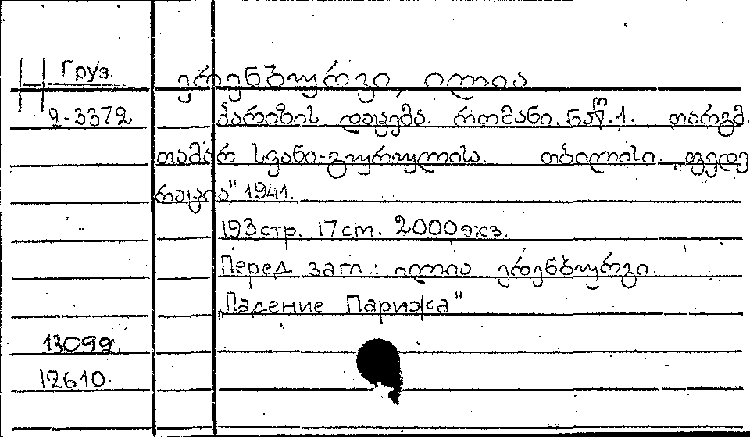 Груз. ერენბურგი, ილია
2-3372 პარიზის დაცემა. რომანი. ნაწ. 1. თარგმ.
თამარ სვანი-გიურჯულისა. თბილისი. „ფედე
რაცია" 1941.
193 стр. 17 cm. 2000 экз.
Перед загл.: ილია ერენბურგი.
„Падение Парижа"
13099
12610.